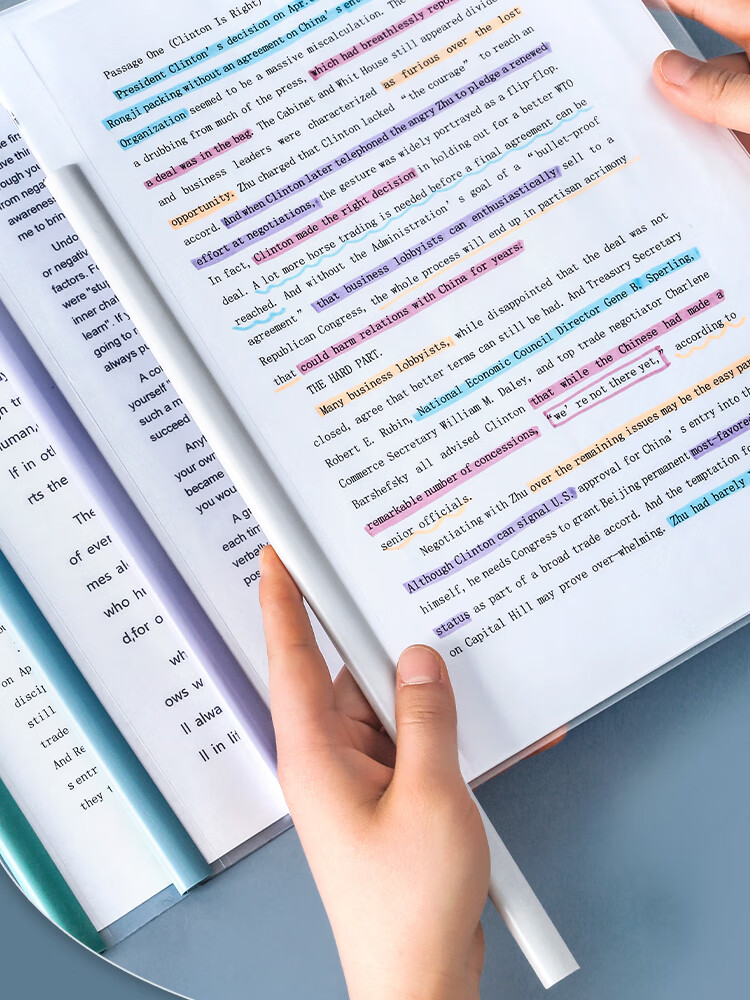 Passage One (Clinton Is Right)
President Clinton's decision on Apr.
Rongji packing without an agreement on China's ent
Organization seemed to be a massive miscalculation. The
a drubbing from much of the press, which had breathlessly repo
a deal was in the bag. The Cabinet and Whit House still appeared divide
and business leaders were characterized as furious over the lost
opportunity. Zhu charged that Clinton lacked "the courage" to reach an
accord. And when Clinton later telephoned the angry Zhu to pledge a renewed
effort at negotiations, the gesture was widely portrayed as a flip-flop.
In fact, Clinton made the right decision in holding out for a better WTO
deal. A lot more horse trading is needed before a final agreement can be
reached. And without the Administration's goal of a "bullet-proof
agreement" that business lobbyists can enthusiastically sell to a
Republican Congress, the whole process will end up in partisan acrimony
that could harm relations with China for years.
THE HARD PART.
Many business lobbyists, while disappointed that the deal was not
closed, agree that better terms can still be had. And Treasury Secretary
Robert E. Rubin, National Economic Council Director Gene B. Sperling,
Commerce Secretary William M. Daley, and top trade negotiator Charlene
Barshefsky all advised Clinton that while the Chinese had made a
remarkable number of concessions, "we're not there yet," according to
senior officials.
Negotiating with Zhu over the remaining issues may be the easy pa
Although Clinton can signal U.S. approval for China's entry into th
himself, he needs Congress to grant Beijing permanent most-favore
status as part of a broad trade accord. And the temptation fo
on Capital Hill may prove over-whelming. Zhu had barely
from nega
awareness
me to brin
Undo
or negativ
factors. F
were "stu
inner cha
learn". If
going to
always p
A co
yourself
such a m
succeed
Any
your own
became
you wou
A g
each tim
verball
pos
human,
If in ot
rts the
The
of ever
mes al
who h
d,for o
wh
ows w
ll alwa
ll in li
on Ap
discil
still
trade
And Re
s entr
they